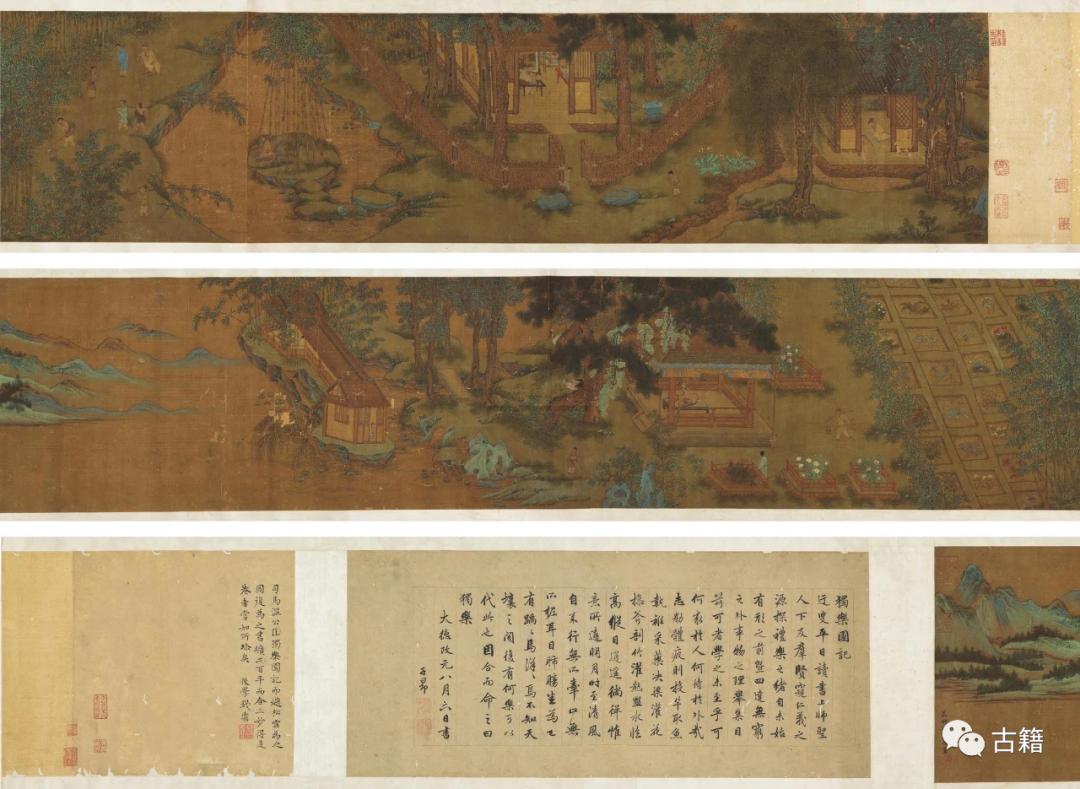 獨樂園記
迂叟平日讀書上師聖
人下友羣賢窺仁義之
源探禮樂之緒自未始
有形之前暨四達無窮
之外事物之理舉集目
前可者學之未至乎可
何求於人何待於外哉
志勌體疲則投竿取魚
執衽采藥決渠灌花
操斧剖竹濯熱盥水臨
高縱目逍遙徜徉惟
意所適明月時至清風
自來行無所牽止無
所柅耳目肺腸卷為己
有踽踽焉洋洋焉不知天
壤之間復有何樂可以
代此也因合而命之曰
獨樂
大德改元八月六日書
子昂
司馬溫公作獨樂園記而趙松雪為之
圖復為之書壙二百年而合二妙得是
卷者當如何珍矣 後學錢
古籍